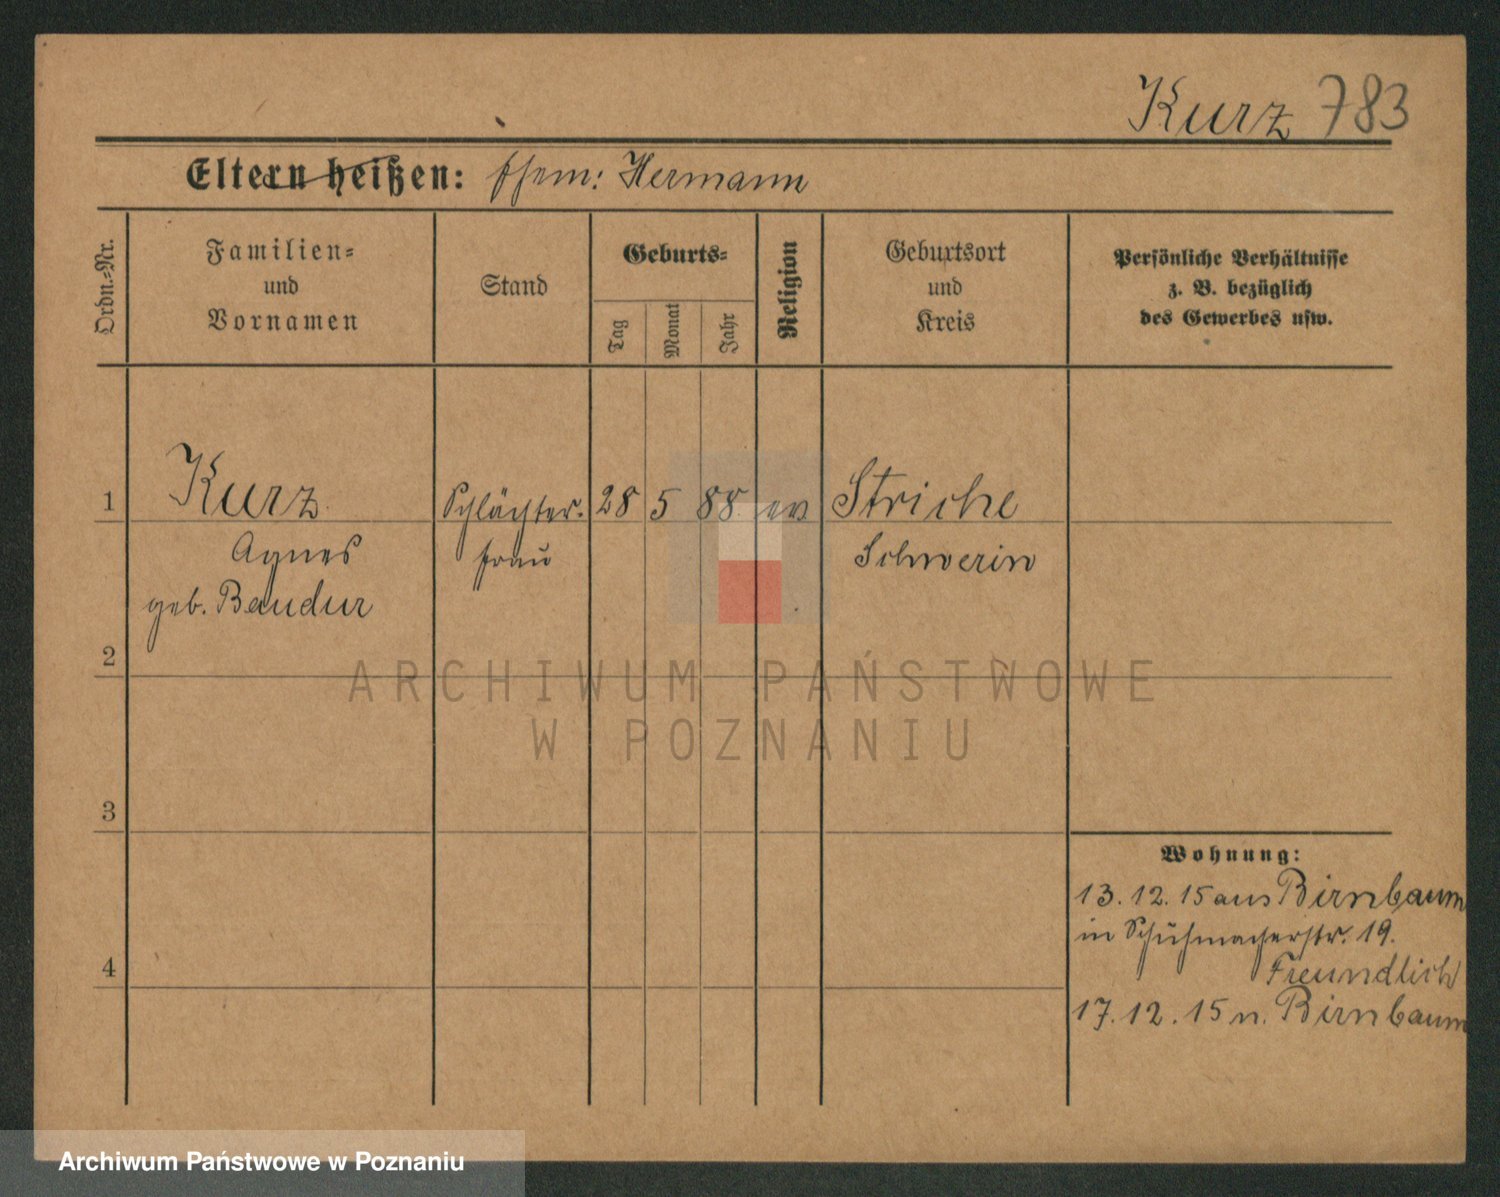 Kurz 783
Eltern heißen: Ehem: Hermann
Ordn.=Nr.
Familien=
und
Vornamen
Stand
Geburts=
Tag
Monat
Jahr
Religion
Geburtsort
und
Kreis
Persönliche Verhältnisse
z. B. bezüglich
des Gewerbes usw.
1 Kurz Schlächter- 28 5 88 ev Striche
Agnes frau Schwerin
geb. Baudur
2
ARCHIWUM PAŃSTWOWE
W POZNANIU
3
Wohnung:
13. 12. 15 aus Birnbaum
in Schuhmacherstr. 19.
4
Freundlich
17. 12. 15 n. Birnbaum
Archiwum Państwowe w Poznaniu